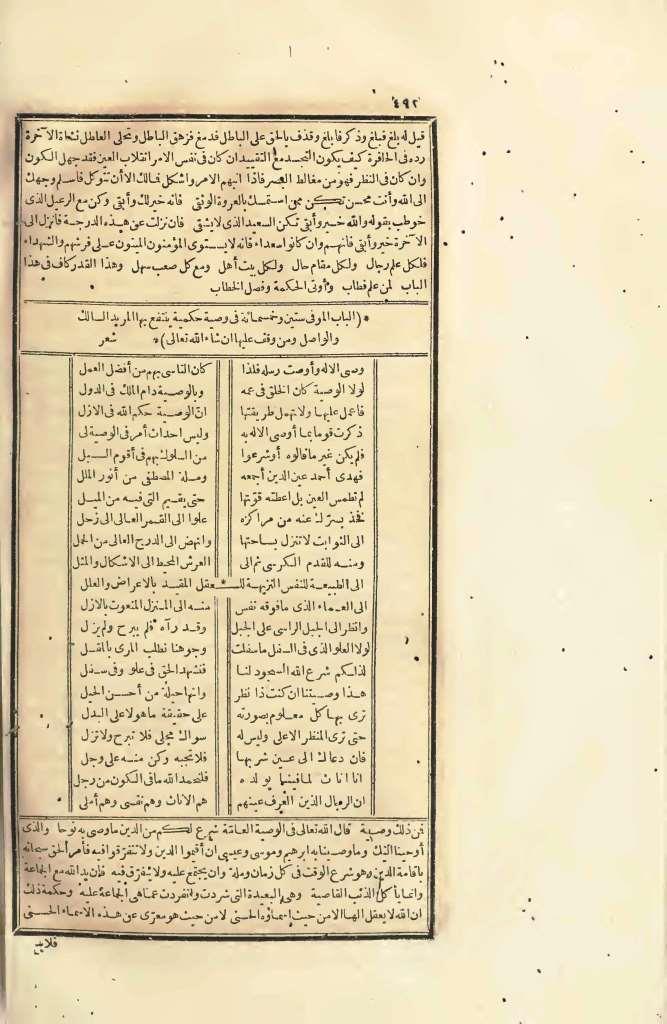 ٤٩٢
قيل له بلغ فبلغ وذكر فابلغ وقذف بالحق على الباطل فدمغ فزهق الباطل وتحلى العاطل نشأة الآخرة
رده فى الحافرة كيف يكون التجسد مع التقييد ان كان فى نفس الامر انقلاب العين فقد جهل الكون
وان كان فى النظر فهو من مغالط البصر فاذا انبهم الامر واشكل فمالك الا أن تتوكل فاسلم وجهك
الى الله وأنت محسن تكن ممن استمسك بالعروة الوثقى فانه خير لك وأبقى وكن مع الرعيل الذى
خوطب بقوله والله خير وأبقى تكن السعيد الذى لا يشقى فان نزلت عن هذه الدرجة فانزل الى
الآخرة خير وأبقى فانهم وان كانوا سعداء فانه لا يستوى المؤمنون الميتون على فرشهم والشهداء
فلكل علم رجال ولكل مقام حال ولكل بيت أهل ومع كل صعب سهل وهذا القدر كاف فى هذا
الباب لمن علم فطاب وأوتى الحكمة وفصل الخطاب
* (الباب الموفى ستين وخمسمائة فى وصية حكمية ينتفع بها المريد السالك
والواصل ومن وقف عليها ان شاء الله تعالى) * شعر
وصى الاله وأوصت رسله فلذا كان التاسى بهم من أفضل العمل
لولا الوصية كان الخلق فى عمه وبالوصية دام الملك فى الدول
فاعمل عليها ولا تهمل طريقتها ان الوصية حكم الله فى الازل
ذكرت قوما بما أوصى الاله به وليس احداث أمر فى الوصية لى
فلم يكن غير ما قالوه أو شرعوا من السلوك بهم فى أقوم السبل
فهدى أحمد عين الدين أجمعه وملة المصطفى من أنور الملل
لم تطمس العين بل اعطته قوتها حتى يقيم التى فيه من الميل
فخذ بسرك عنه من مراكزه علوا الى القمر العالى الى زحل
الى الثوابت لا تنزل بساحتها وانهض الى الدرج العالى من الحمل
ومنه للقدم الكرسى ثم الى العرش المحيط الى الاشكال والمثل
الى الطبيعة للنفس النزيهة للعقل المقيد بالاعراض والعلل
الى العماء الذى ما فوقه نفس منه الى المنزل المنعوت بالازل
وانظر الى الجبل الراسى على الجبل وقد رآه فلم يبرح ولم يزل
لولا العلو الذى فى السفل ما سفلت وجوهنا تطلب المرئ بالمقل
لذلكم شرع الله السجود لنا فنشهد الحق فى علو وفى سفل
هذا وصيتنا ان كنت ذا نظر وانها حيلة من أحسن الحيل
ترى بها كل معلوم بصورته على حقيقة ما هو لا على البدل
حتى ترى المنظر الاعلى وليس له سواك مجلى فلا تبرح ولا تزل
فان دعاك الى عين شر بها فلا تجبه وكن منه على وجل
انا اناث لما فينا يولده فلنحمد الله ما فى الكون من رجل
ان الرجال الذين العرف عينهم هم الاناث وهم نفسى وهم أملى
فن ذلك وصية قال الله تعالى فى الوصية العامة شرع لكم من الدين ما وصى به نوحا والذى
أوحينا اليك وما وصينا به ابرهيم وموسى وعيسى ان أقيموا الدين ولا تتفرقوا فيه فأمر الحق سبحانه
باقامة الدين وهو شرع الوقت فى كل زمان وملة وان يجتمع عليه ولا يتفرق فيه فان يد الله مع الجماعة
وانما يأكل الذئب القاصية وهى البعيدة التى شردت وانفردت عما هى الجماعة عليه وحكمة ذلك
ان الله لا يعقل الها الا من حيث اسماؤه الحسنى لا من حيث هو معرى عن هذه الاسماء الحسنى
فلابد